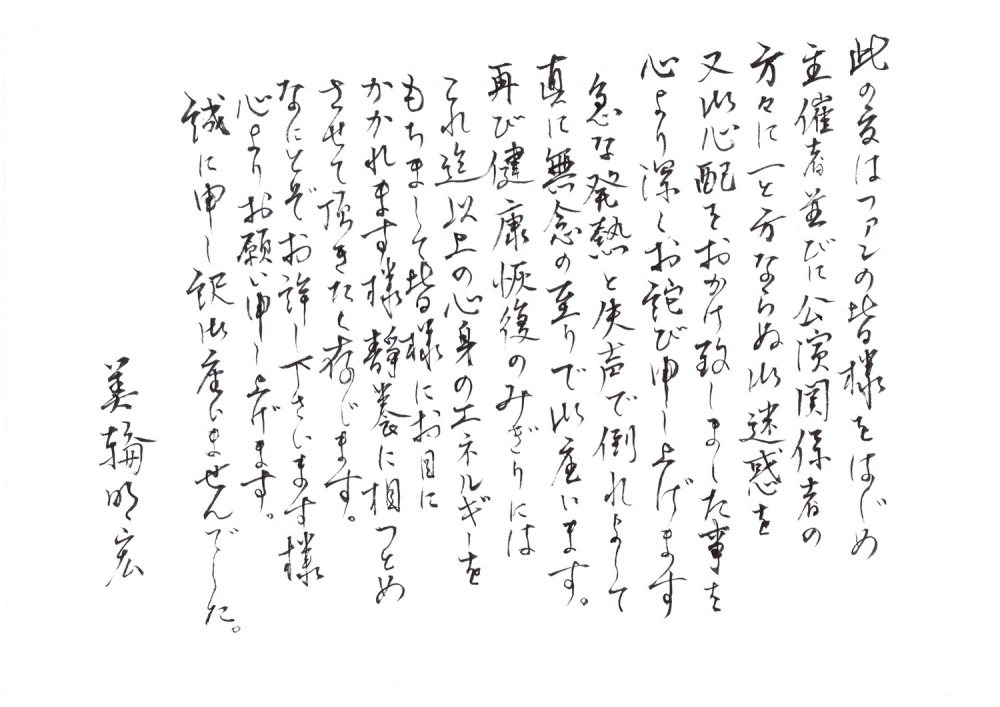 此の度はファンの皆様をはじめ
主催者並びに公演関係者の
方々に一と方ならぬ御迷惑を
又御心配をおかけ致しました事を
心より深くお詑び申し上げます
急な発熱と失声で倒れまして
真に無念の至りで御座います。
再び健康恢復のみぎりには
これ迄以上の心身のエネルギーを
もちまして皆様にお目に
かかれます様静養に相つとめ
させて頂きたく存じます。
なにとぞお許し下さいます様
心よりお願い申し上げます。
誠に申し訳御座いませんでした。
美輪明宏